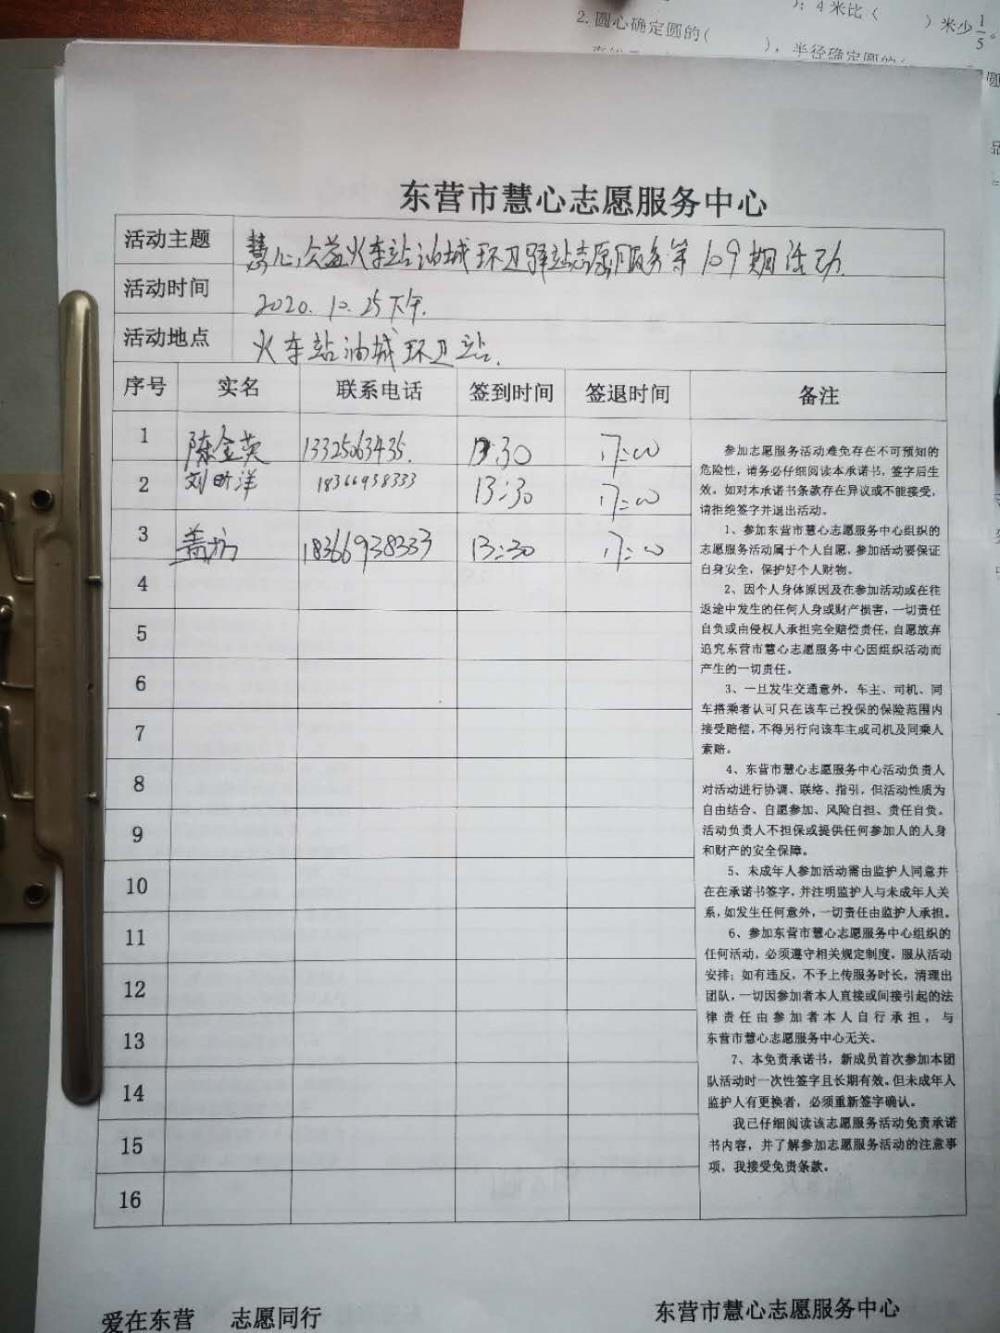 ）；4米比（　　）米少1/5。
2.圆心确定圆的(　　），半径确定圆的(
东营市慧心志愿服务中心
活动主题 慧心公益火车站油城环卫驿站志愿服务第109期活动
活动时间 2020.10.25下午.
活动地点 火车站油城环卫站.
序号 实名 联系电话 签到时间 签退时间 备注
1 陈金英 13325063435. 13:30 17:00
2 刘昕洋 18366938333 13:30 17:00
3 盖 18366938333 13:30 17:00
4
5
6
7
8
9
10
11
12
13
14
15
16
参加志愿服务活动难免存在不可预知的
危险性，请务必仔细阅读本承诺书，签字后生
效。如对本承诺书条款存在异议或不能接受，
请拒绝签字并退出活动。
1、参加东营市慧心志愿服务中心组织的
志愿服务活动属于个人自愿，参加活动要保证
自身安全，保护好个人财物。
2、因个人身体原因及在参加活动或在往
返途中发生的任何人身或财产损害，一切责任
自负或由侵权人承担完全赔偿责任，自愿放弃
追究东营市慧心志愿服务中心因组织活动而
产生的一切责任。
3、一旦发生交通意外，车主、司机、同
车搭乘者认可只在该车已投保的保险范围内
接受赔偿，不得另行向该车主或司机及同乘人
索赔。
4、东营市慧心志愿服务中心活动负责人
对活动进行协调、联络、指引，但活动性质为
自由结合、自愿参加、风险自担、责任自负。
活动负责人不担保或提供任何参加人的人身
和财产的安全保障。
5、未成年人参加活动需由监护人同意并
在在承诺书签字，并注明监护人与未成年人关
系，如发生任何意外，一切责任由监护人承担。
6、参加东营市慧心志愿服务中心组织的
任何活动，必须遵守相关规定制度，服从活动
安排；如有违反，不予上传服务时长，清理出
团队，一切因参加者本人直接或间接引起的法
律责任由参加者本人自行承担，与
东营市慧心志愿服务中心无关。
7、本免责承诺书，新成员首次参加本团
队活动时一次性签字且长期有效。但未成年人
监护人有更换者，必须重新签字确认。
我已仔细阅读该志愿服务活动免责承诺
书内容，并了解参加志愿服务活动的注意事
项，我接受免责条款。
爱在东营　志愿同行 东营市慧心志愿服务中心